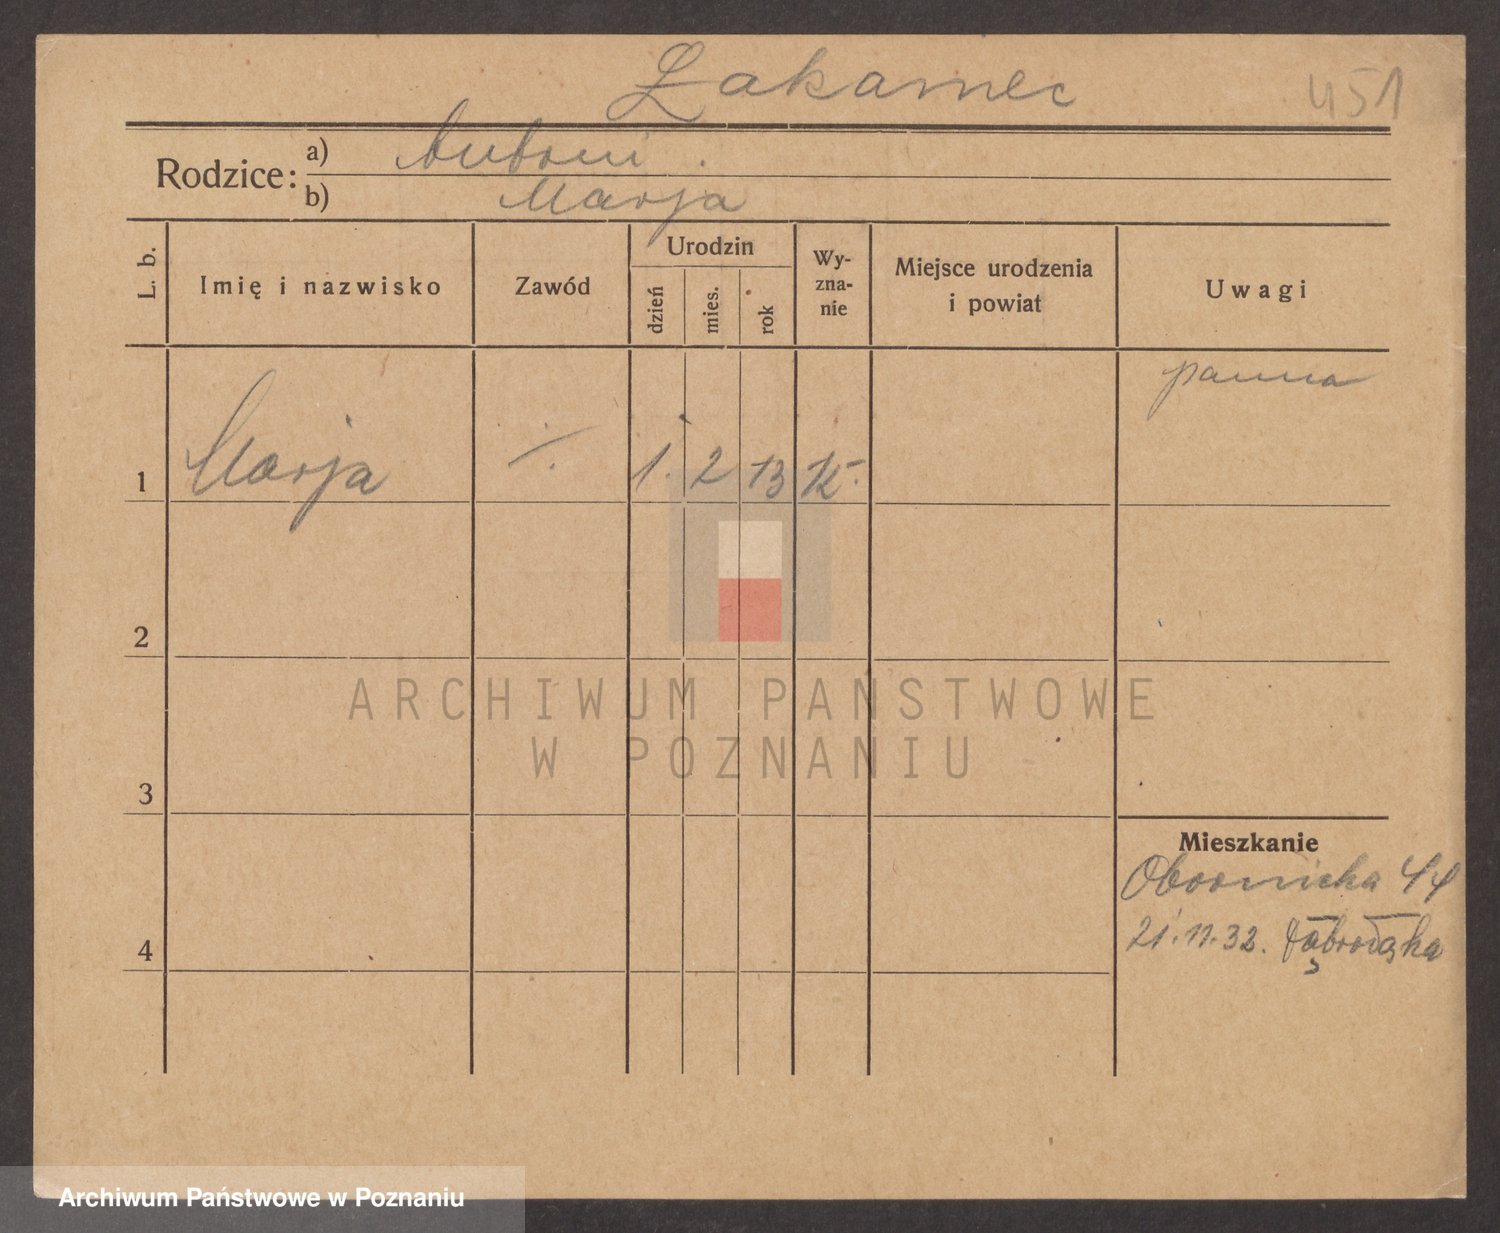 Żakamec
451
Rodzice:
a) Antoni.
b) Marja
L. b.
Imię i nazwisko
Zawód
Urodzin
dzień
mies.
rok
Wy-
zna-
nie
Miejsce urodzenia
i powiat
Uwagi
panna
1 Marja ·/. 1. 2 13 K.
2
3
4
Mieszkanie
Obornicka 44
21.11.32.
ARCHIWUM PAŃSTWOWE
W POZNANIU
Archiwum Państwowe w Poznaniu